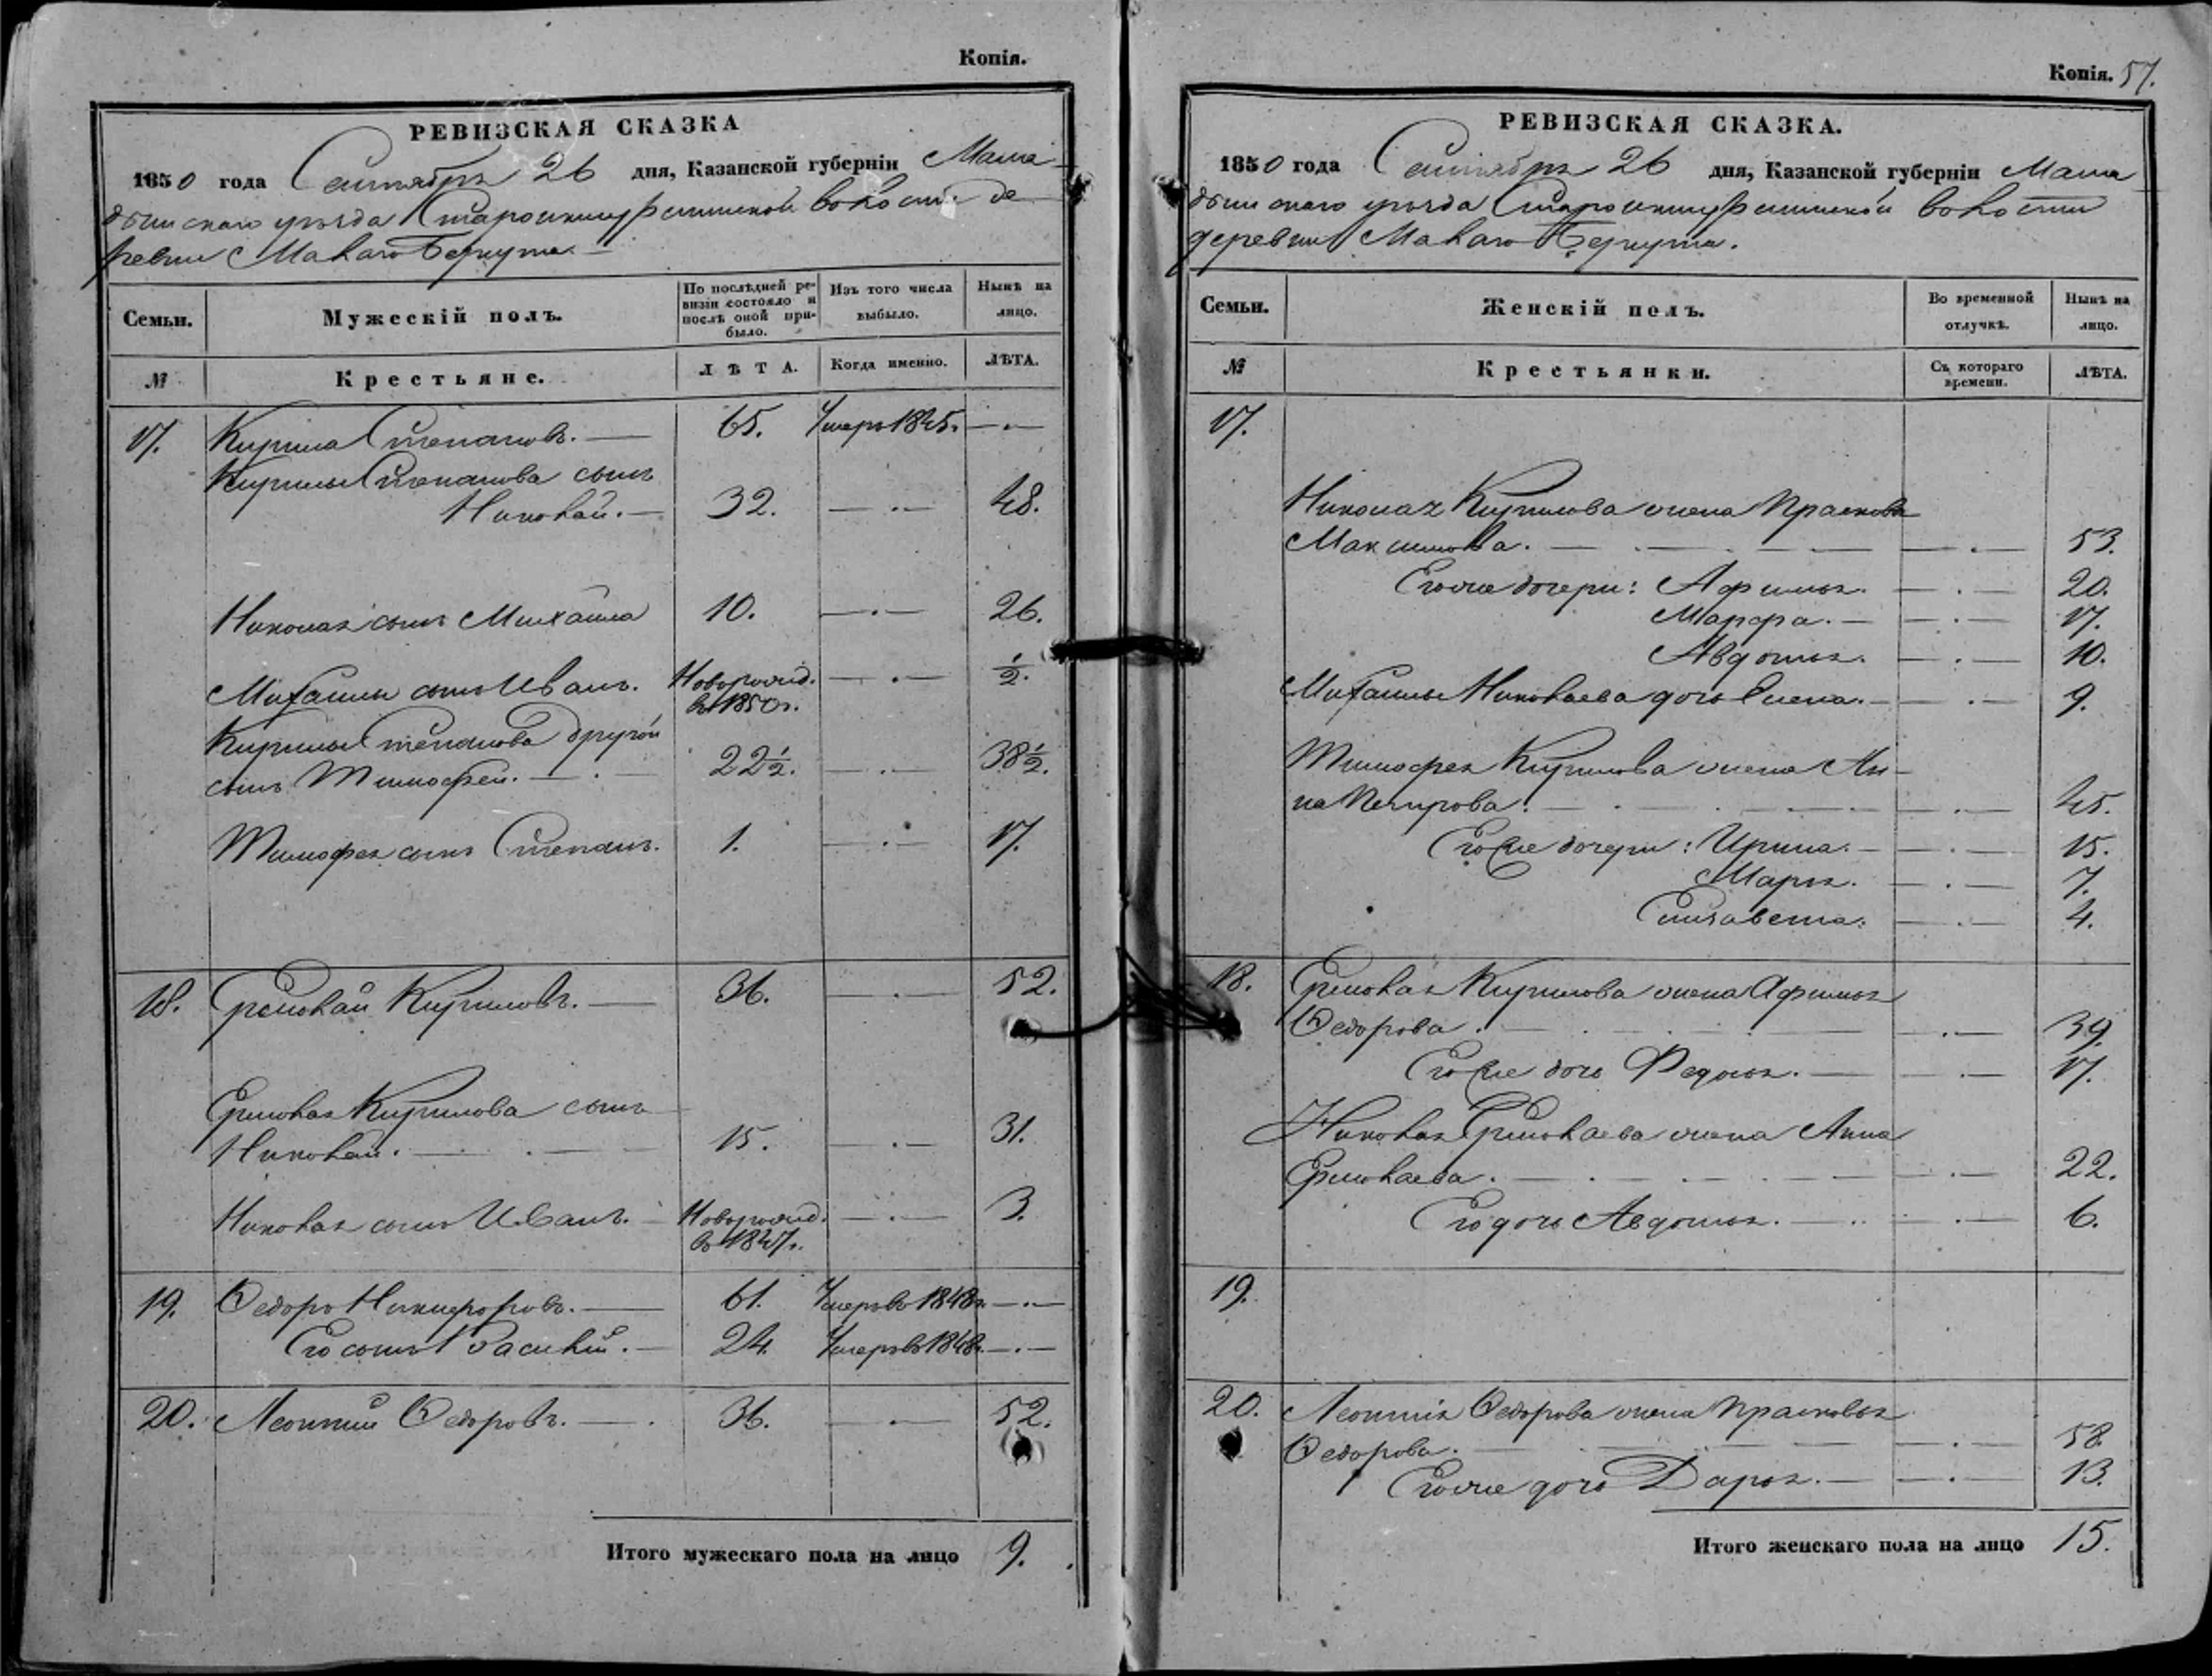 Копія.
РЕВИЗСКАЯ СКАЗКА
1850 года Сентября 26 дня, Казанской губерніи Мама
дышскаго уѣзда волости де
ревни Малаго
Семьи.
Мужескій полъ.
По послѣдней ре-
визіи состояло и
послѣ оной при-
было.
Изъ того числа
выбыло.
Нынѣ на
лицо.
№
Крестьяне.
ЛѢТА.
Когда именно.
ЛѢТА.
17. Кирила Степановъ. 65. Умеръ 1845.
Кирилы Степанова сынъ
Николай. 32. 48.
Николая сынъ Михайла 10. 26.
Михайлы сынъ Иванъ. Новорожд. 1/2.
въ 1850 г.
Кирилы Степанова другой
сынъ Тимофей. 22 1/2. 38 1/2.
Тимофея сынъ Степанъ. 1. 17.
18. Ермолай Кириловъ. 36. 52.
Ермолая Кирилова сынъ
Николай. 15. 31.
Николая сынъ Иванъ. Новорожд. 3.
въ 1847 г.
19. Ѳедоръ Никифоровъ. 61. Умеръ въ 1848 г.
Его сынъ Василій. 24. Умеръ въ 1848 г.
20. Леонтий Ѳедоровъ. 36. 52.
Итого мужескаго пола на лицо 9.
Копія. 57.
РЕВИЗСКАЯ СКАЗКА.
1850 года Сентября 26 дня, Казанской губерніи Мама
дышскаго уѣзда волости
деревни Малаго
Семьи.
Женскій полъ.
Во временной
отлучкѣ.
Нынѣ на
лицо.
№
Крестьянки.
Съ котораго
времени.
ЛѢТА.
17.
Николая Кирилова жена Прасковья
Максимова. 53.
Его же дочери: Афимья. 20.
Марфа. 17.
Авдотья. 10.
Михайлы Николаева дочь Елена. 9.
Тимофея Кирилова жена Ан-
на Петрова. 45.
Его же дочери: Ирина. 15.
Марья. 7.
Елизавета. 4.
18. Ермолая Кирилова жена Афимья
Ѳедорова. 39.
Его же дочь Федосья. 17.
Николая Ермолаева жена Анна
Ермолаева. 22.
Его дочь Авдотья. 6.
19.
20. Леонтія Ѳедорова жена Прасковья
Ѳедорова. 58.
Его же дочь Дарья. 13.
Итого женскаго пола на лицо 15.